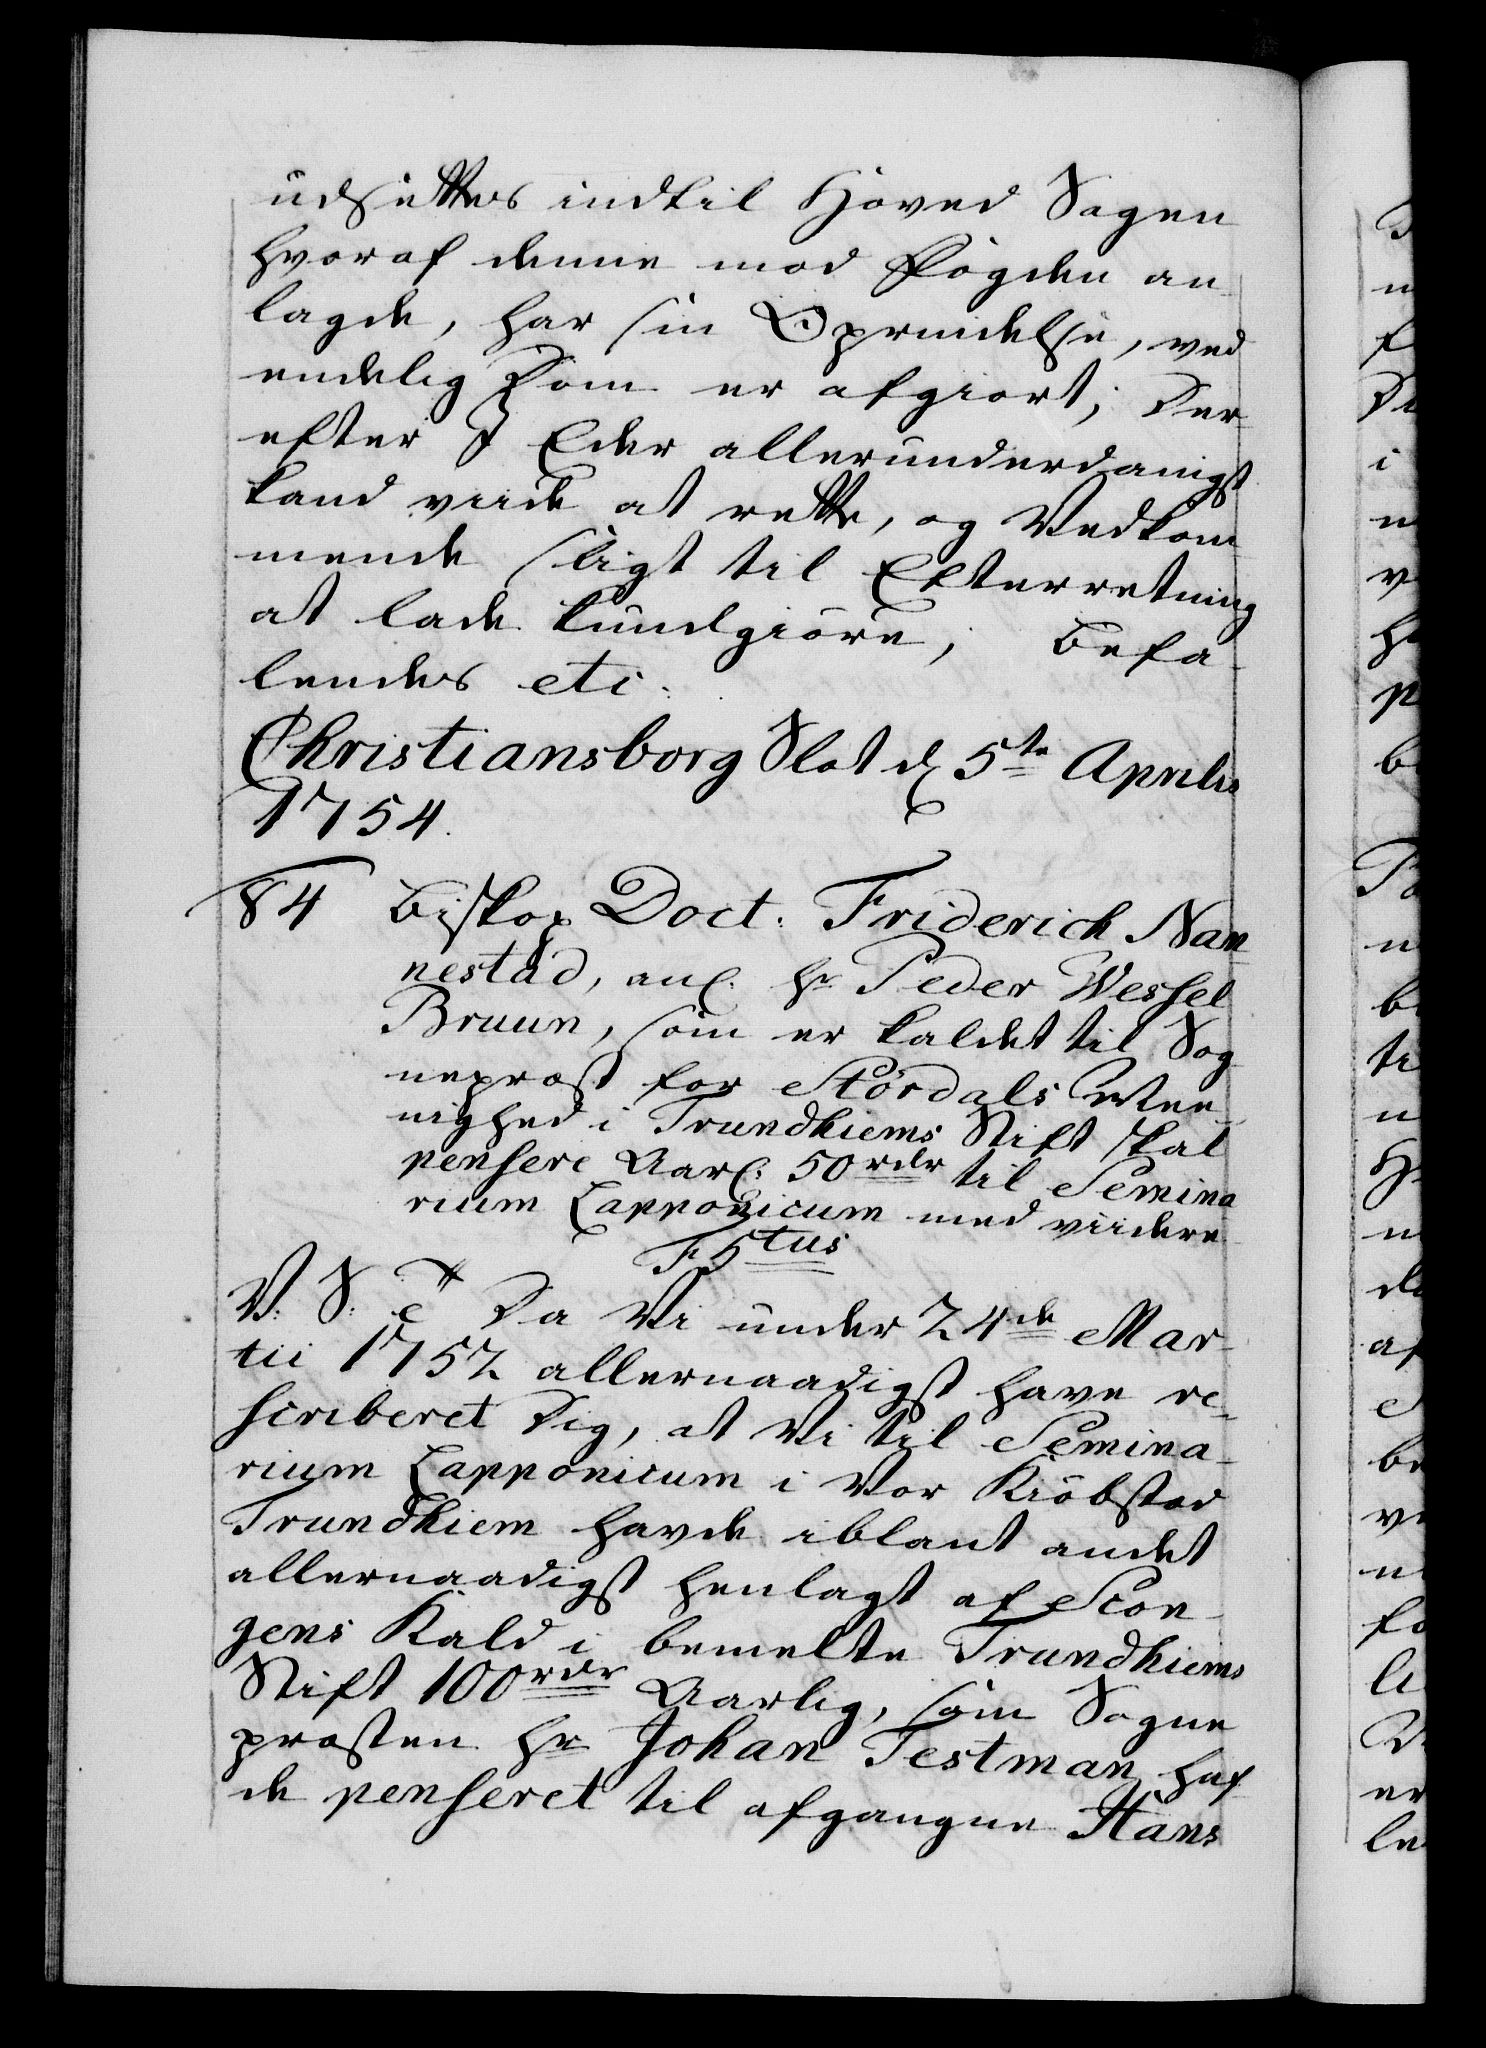 udsættes indtil Hoved Sagen
hvoraf denne mod Fogden an-
lagde, har sin Oprindelse, ved
endelig Dom er afgiort; Der-
efter I Eder allerunderdanigst
kand viide at rette, og Vedkom-
mende sligt til Efterretning
at lade kundgiøre; Befa-
lendes etc:
Christiansborg Slot d 5te Aprilis
1754.
84 Biskop Doct: Friderich Nan-
nestad, anl: hr Peder Wessel
Bruun, som er kaldet til Sog-
neprest for Størdals Mee-
nighed i Trundhiems Stift skal
pensere Aarl: 50 rdr til Semina-
rium Lapponicum med viidere
F. 5tus
V: S: Da Vi under 24de Mar-
tii 1752 allernaadigst have re-
scriberet Dig, at Vi til Semina-
rium Lapponicum i Vor Kiøbstad
Trundhiem havde iblant andet
allernaadigst henlagt af Scon-
gens Kald i bemelte Trundhiems
Stift 100 rdr Aarlig, som Sogne
præsten hr Johan Testman haf-
de penseret til afgangne Hans